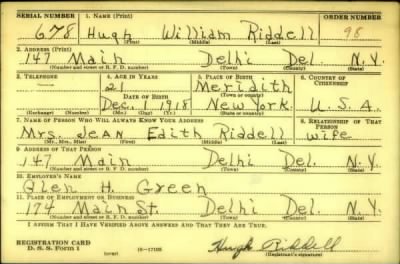 SERIAL NUMBER 1. NAME (Print) ORDER NUMBER
678 Hugh William Riddell 98
(First) (Middle) (Last)
2. ADDRESS (Print)
147 Main Delhi Del. N.Y.
(Number and street or R. F. D. number) (Town) (County) (State)
3. TELEPHONE 4. AGE IN YEARS 5. PLACE OF BIRTH 6. COUNTRY OF CITIZENSHIP
21 Meridith
DATE OF BIRTH (Town or county)
Dec. 1 1918 New York. U.S.A.
(Exchange) (Number) (Mo.) (Day) (Yr.) (State or country)
7. NAME OF PERSON WHO WILL ALWAYS KNOW YOUR ADDRESS 8. RELATIONSHIP OF THAT PERSON
Mrs. Jean Edith Riddell wife
(Mr., Mrs., Miss) (First) (Middle) (Last)
9. ADDRESS OF THAT PERSON
147 Main Delhi Del. N.Y.
(Number and street or R. F. D. number) (Town) (County) (State)
10. EMPLOYER'S NAME
Glen H. Green
11. PLACE OF EMPLOYMENT OR BUSINESS
174 Main St. Delhi Del. N.Y.
(Number and street or R. F. D. number) (Town) (County) (State)
I AFFIRM THAT I HAVE VERIFIED ABOVE ANSWERS AND THAT THEY ARE TRUE.
REGISTRATION CARD
D. S. S. Form 1 16-17105 Hugh Riddell
(over) (Registrant's signature)